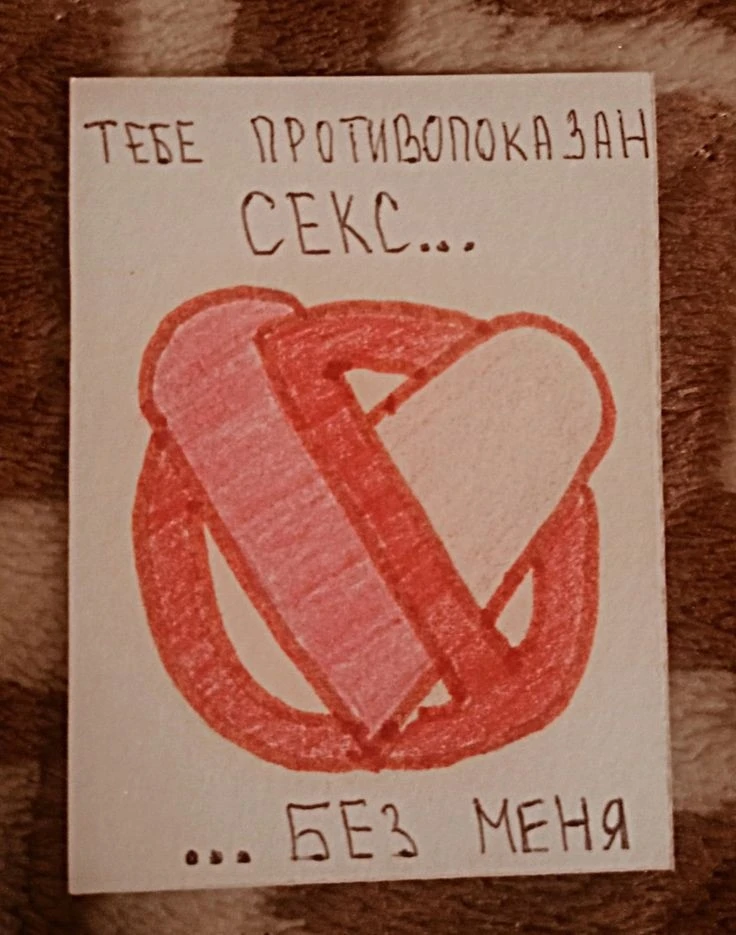 ТЕБЕ ПРОТИВОПОКАЗАН
СЕКС...
... БЕЗ МЕНЯ